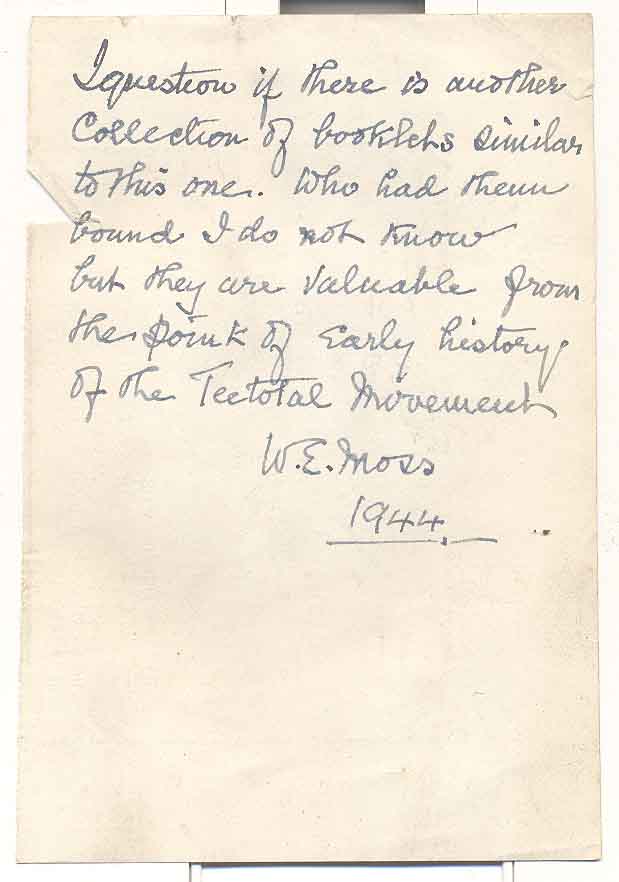 I question if there is another
Collection of booklets similar
to this one. Who had them
bound I do not know
but they are valuable from
the point of Early history
of the Teetotal Movement
W.E. Moss
1944